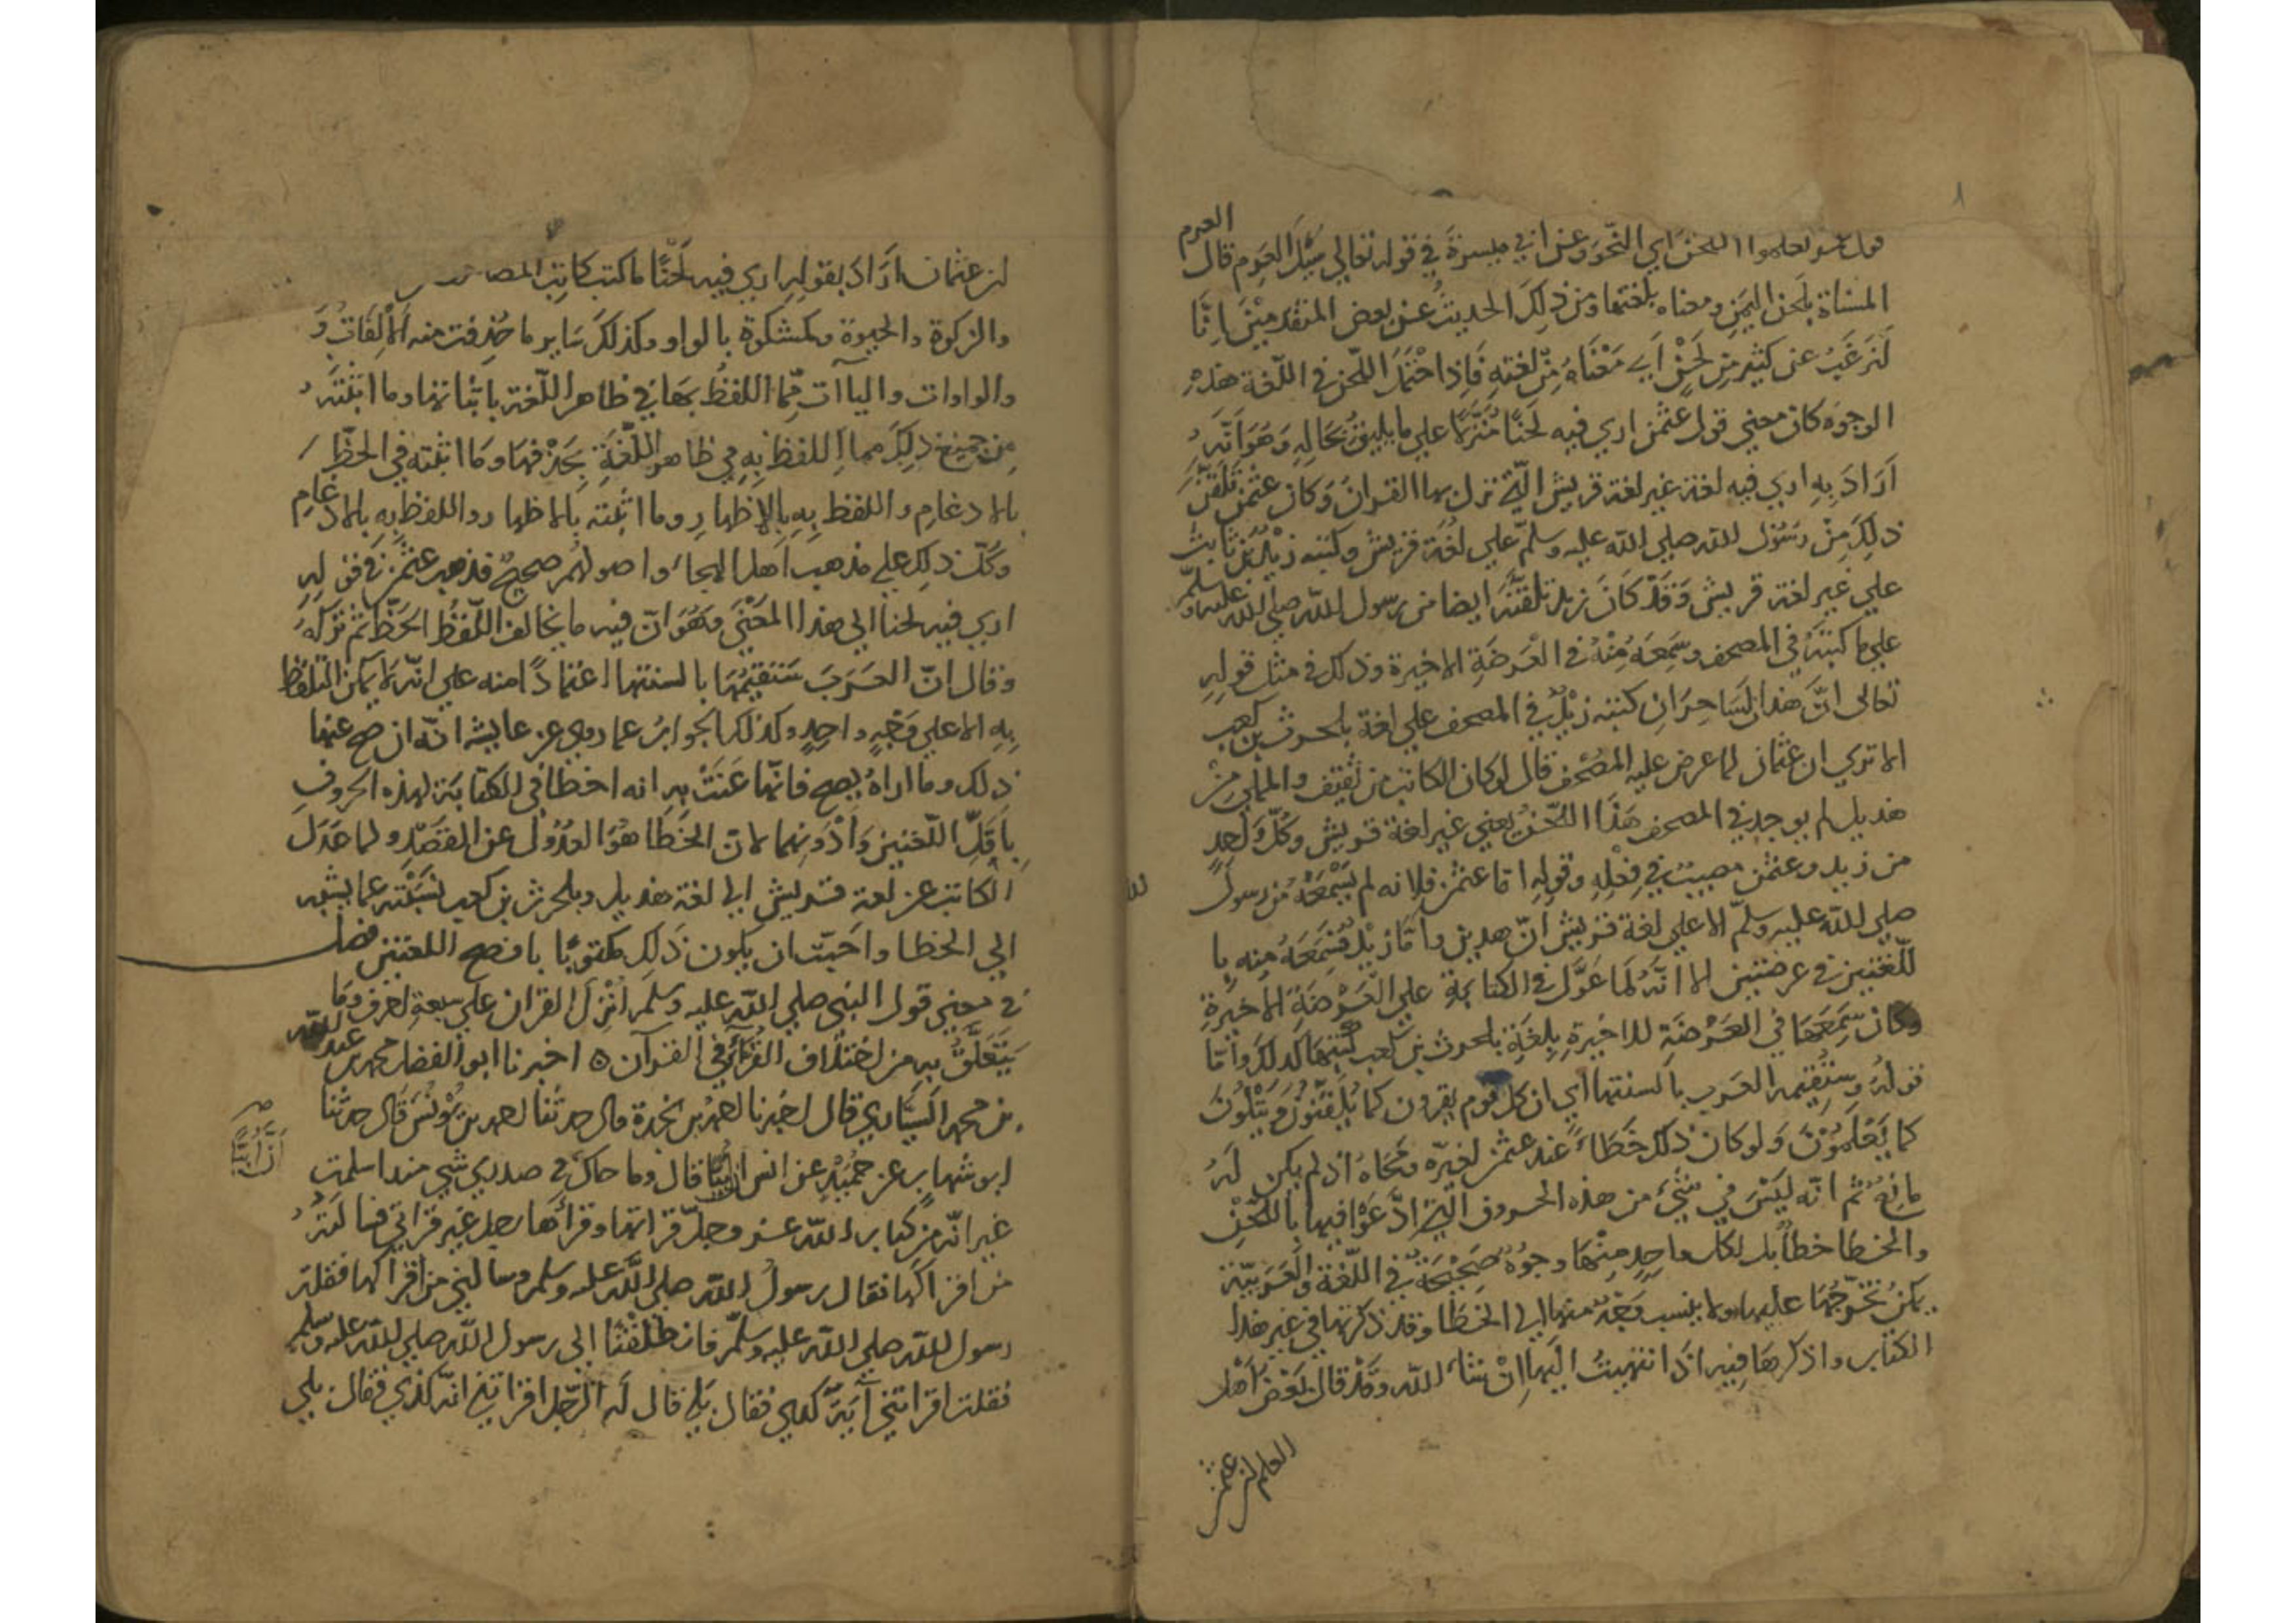 العرم
قول عمر تعلموا اللحن اي النحو وعن ابي ميسرة في قوله تعالي سَيْلَ العرم قال
المسناة بلحن اليمن ومعناه بلغتها ومن ذلك الحديث عن بعض المتقدمين إنّا
لنرغب عن كثير من لحن أُبي معناه من لغته فاذا احتمل اللحن في اللغة هذه
الوجوه كان معني قول عثمن اري فيه لحنا منزلا علي ما يليق بحاله وهو انّه
اراد به اري فيه لغة غير لغة قريش الّتي نزل بها القران وكان عثمن تلقن
ذلك من رسول الله صلي الله عليه وسلّم علي لغة قريش وكتبه زيد بن ثابت
علي غير لغة قريش وقد كان زيد تلقنه ايضا من رسول الله صلي الله عليه وسلّم
علي ما كتبه في المصحف وسمعه منه في العرضة الاخيرة وذلك في مثل قوله
تعالى انّ هذان لساحران كتبه زيد في المصحف علي لغة بلحرث بن كعب
الا تري ان عثمان لما عرض عليه المصحف قال لو كان الكاتب من ثقيف والمملي من
هذيل لم يوجد في المصحف هذا اللحن يعني غير لغة قريش وكلّ واحدٍ
من زيد وعثمن مصيب في فعله وقوله امّا عثمن فلانه لم يسمعه من رسول الله
صلي الله عليه وسلّم الا علي لغة قريش انّ هذين وامّا زيد فسمعه منه با
للّغتين في عرضتين الا انّه لما عوّل في الكتابة علي العرضة الاخيرة
وكان سمعها في العرضة الاخيرة بلغة بلحرث بن كعب كتبها كذلك وامّا
قوله وستقيمه العرب بالسنتها اي ان كل قوم يقرون كما يلقنون ويتلون
كما يعلمون ولو كان ذلك خطاءً عند عثمن لغيّره ومحاه اذ لم يكن له
مانع ثم انّه ليس في شيء من هذه الحروف الّتي ادّعوا فيها باللّحن
والخطا خطأ بل لكل واحد منها وجوه صحيحة في اللّغة والعربيّة
يمكن تخرّجها عليها ولا ينسب وجه منها الي الخطا وقد ذكرتها في غير هذا
الكتاب واذكرها فيه اذا انتهيت اليها ان شاء الله وقد قال بعض اهل
العلم ان عثمن
ان عثمان اراد بقوله اري فيه لحنًا ما كتب كاتب المصاحف
والزكوة والحيوة وكمشكوة بالواو وكذلك ساير ما حذفت منه الألفات و
والواوات والياآت مما اللفظ بها في ظاهر اللّغة باثباتها وما اثبته
من جميع ذلك مما اللفظ به في ظاهر اللّغة بحذفها وما اثبته في الخطّ
بالادغام واللفظ به بالإظهار وما اثبته بالاظهار واللفظ به بالادغام
وكلّ ذلك علي مذهب اهل الهجاء واصولهم صحيح فذهب عثمن في قوله
اري فيه لحنا الي هذا المعني وهو انّ فيه ما يخالف اللّفظ الخطّ ثم تركه
وقال انّ العرب ستقيمها بالسنتها اعتمادًا منه علي انّه لا يمكن التلفظ
به الا علي وجه واحد وكذلك الجواب عما روي عن عايشة انّه ان صح عنها
ذلك وما اراه يصح فانّها عنت به انه اخطأ في الكتابة لهذه الحروف
باقلّ اللّغتين وادونهما لانّ الخطا هو العدول عن القصد ولما عدل
الكاتب عن لغة قريش الي لغة هذيل وبلحرث بن كعب نسبته عايشة
الي الخطا واحبّت ان يكون ذلك مكتوبًا بافصح اللغتين فصل
في معني قول النبي صلي الله عليه وسلم انزل القران علي سبعة احرف وما
يتعلّق به من اختلاف القراء في القرآن ٥ اخبرنا ابو الفضل محمد بن عبد الله
بن محمد السيّاري قال اخبرنا احمد بن نجدة قال حدثنا احمد بن يونس قال حدثنا
ابو شهاب عن حميد عن انس انّ أبيّا قال وما حاك في صدري شي منذ اسلمت
صح
أنّ أبيّا
غير انّه من كتاب الله عز وجلّ قراتها وقرأها رجل غير قراتي فسالته
من اقراكها فقال رسول الله صلي الله عليه وسلم وسالني من اقراكها فقلت
رسول الله صلي الله عليه وسلّم فانطلقنا الي رسول الله صلي الله عليه وسلّم
فقلت اقراتني آية كذي فقال بلي قال له الرّجل اقراتني انّه كذي فقال بلي